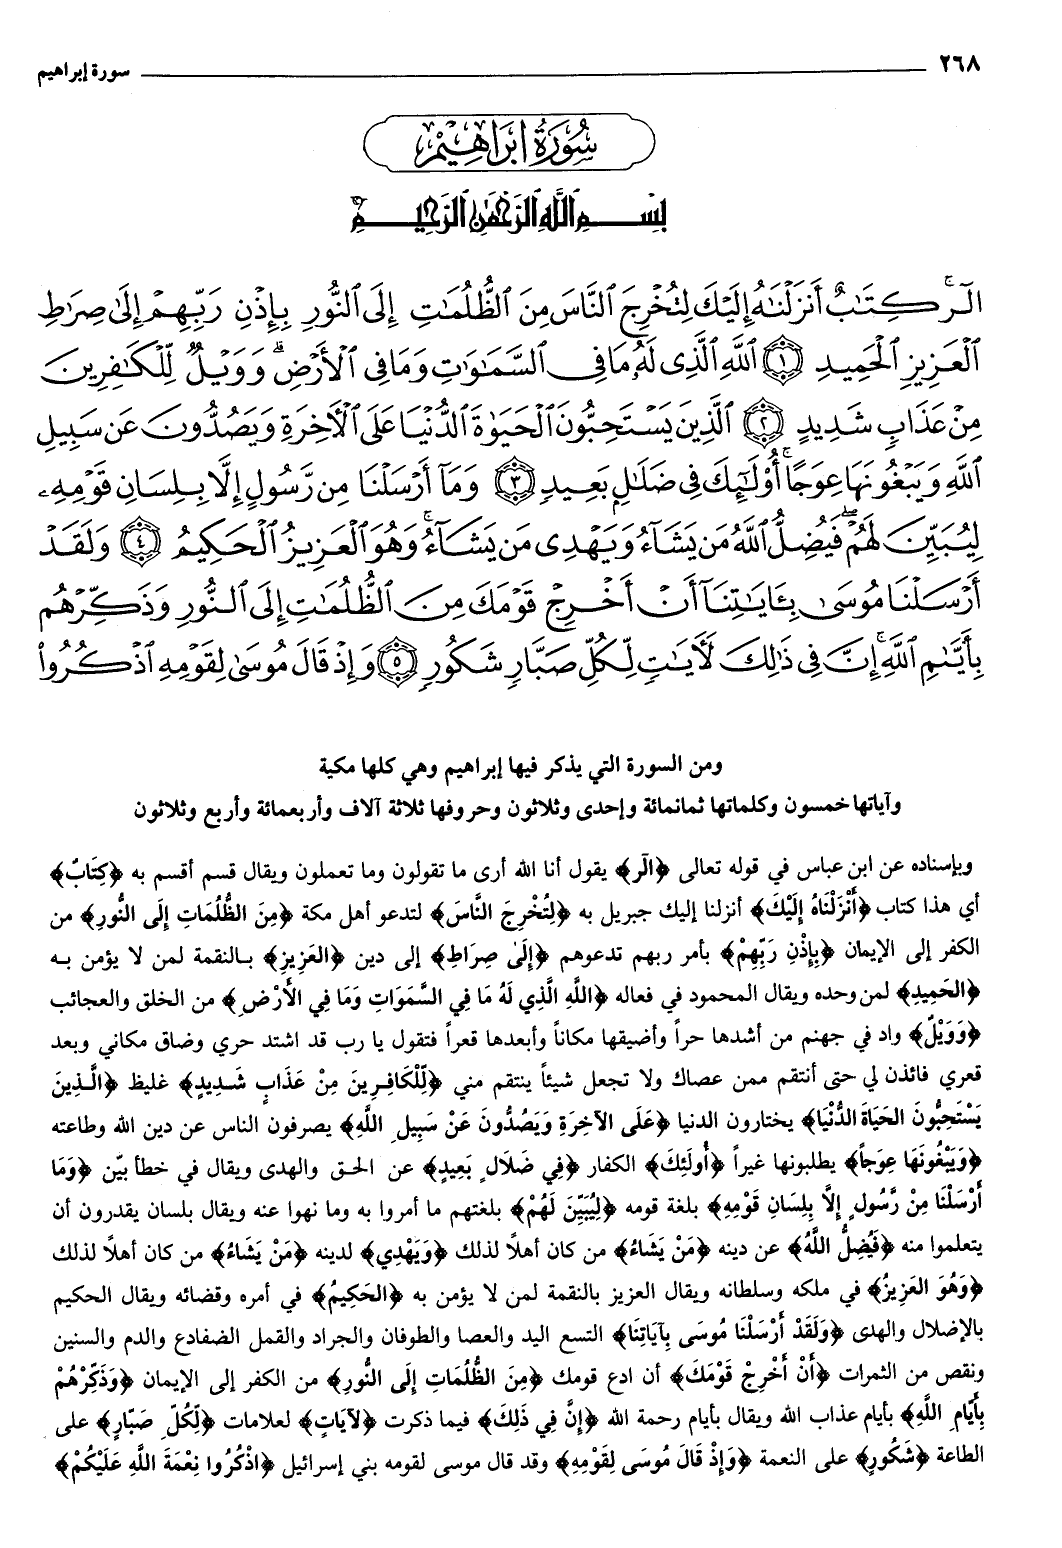 ٢٦٨ سورة إبراهيم
سُورَةُ إِبْرَاهِيْمَ
بِسْمِ ٱللَّهِ ٱلرَّحْمَٰنِ ٱلرَّحِيمِ
الٓرۚ كِتَٰبٌ أَنزَلْنَٰهُ إِلَيْكَ لِتُخْرِجَ ٱلنَّاسَ مِنَ ٱلظُّلُمَٰتِ إِلَى ٱلنُّورِ بِإِذْنِ رَبِّهِمْ إِلَىٰ صِرَٰطِ
ٱلْعَزِيزِ ٱلْحَمِيدِ ۝١ ٱللَّهِ ٱلَّذِى لَهُۥ مَا فِى ٱلسَّمَٰوَٰتِ وَمَا فِى ٱلْأَرْضِۗ وَوَيْلٌ لِّلْكَٰفِرِينَ
مِنْ عَذَابٍ شَدِيدٍ ۝٢ ٱلَّذِينَ يَسْتَحِبُّونَ ٱلْحَيَوٰةَ ٱلدُّنْيَا عَلَى ٱلْأَخِرَةِ وَيَصُدُّونَ عَن سَبِيلِ
ٱللَّهِ وَيَبْغُونَهَا عِوَجًاۚ أُوْلَٰٓئِكَ فِى ضَلَٰلٍۭ بَعِيدٍ ۝٣ وَمَآ أَرْسَلْنَا مِن رَّسُولٍ إِلَّا بِلِسَانِ قَوْمِهِۦ
لِيُبَيِّنَ لَهُمْۖ فَيُضِلُّ ٱللَّهُ مَن يَشَآءُ وَيَهْدِى مَن يَشَآءُۚ وَهُوَ ٱلْعَزِيزُ ٱلْحَكِيمُ ۝٤ وَلَقَدْ
أَرْسَلْنَا مُوسَىٰ بِـَٔايَٰتِنَآ أَنْ أَخْرِجْ قَوْمَكَ مِنَ ٱلظُّلُمَٰتِ إِلَى ٱلنُّورِ وَذَكِّرْهُم
بِأَيَّىٰمِ ٱللَّهِۚ إِنَّ فِى ذَٰلِكَ لَأَيَٰتٍ لِّكُلِّ صَبَّارٍ شَكُورٍ ۝٥ وَإِذْ قَالَ مُوسَىٰ لِقَوْمِهِ ٱذْكُرُوا۟
ومن السورة التي يذكر فيها إبراهيم وهي كلها مكية
وآياتها خمسون وكلماتها ثمانمائة وإحدى وثلاثون وحروفها ثلاثة آلاف وأربعمائة وأربع وثلاثون
وبإسناده عن ابن عباس في قوله تعالى ﴿الٓر﴾ يقول أنا الله أرى ما تقولون وما تعملون ويقال قسم أقسم به ﴿كِتَابٌ﴾
أي هذا كتاب ﴿أَنْزَلْنَاهُ إِلَيْكَ﴾ أنزلنا إليك جبريل به ﴿لِتُخْرِجَ النَّاسَ﴾ لتدعو أهل مكة ﴿مِنَ الظُّلُمَاتِ إِلَى النُّورِ﴾ من
الكفر إلى الإيمان ﴿بِإِذْنِ رَبِّهِمْ﴾ بأمر ربهم تدعوهم ﴿إِلَىٰ صِرَاطِ﴾ إلى دين ﴿العَزِيزِ﴾ بالنقمة لمن لا يؤمن به
﴿الحَمِيدِ﴾ لمن وحده ويقال المحمود في فعاله ﴿اللَّهِ الَّذِي لَهُ مَا فِي السَّمَوَاتِ وَمَا فِي الأَرْضِ﴾ من الخلق والعجائب
﴿وَوَيْلٌ﴾ واد في جهنم من أشدها حراً وأضيقها مكاناً وأبعدها قعراً فتقول يا رب قد اشتد حري وضاق مكاني وبعد
قعري فائذن لي حتى أنتقم ممن عصاك ولا تجعل شيئاً ينتقم مني ﴿لِّلْكَافِرِينَ مِنْ عَذَابٍ شَدِيدٍ﴾ غليظ ﴿الَّذِينَ
يَسْتَحِبُّونَ الحَيَاةَ الدُّنْيَا﴾ يختارون الدنيا ﴿عَلَى الآخِرَةِ وَيَصُدُّونَ عَنْ سَبِيلِ اللَّهِ﴾ يصرفون الناس عن دين الله وطاعته
﴿وَيَبْغُونَهَا عِوَجاً﴾ يطلبونها غيراً ﴿أُولَئِكَ﴾ الكفار ﴿فِي ضَلَالٍ بَعِيدٍ﴾ عن الحق والهدى ويقال في خطأ بيّن ﴿وَمَا
أَرْسَلْنَا مِنْ رَّسُولٍ إِلَّا بِلِسَانِ قَوْمِهِ﴾ بلغة قومه ﴿لِيُبَيِّنَ لَهُمْ﴾ بلغتهم ما أمروا به وما نهوا عنه ويقال بلسان يقدرون أن
يتعلموا منه ﴿فَيُضِلُّ اللَّهُ﴾ عن دينه ﴿مَنْ يَشَاءُ﴾ من كان أهلاً لذلك ﴿وَيَهْدِي﴾ لدينه ﴿مَنْ يَشَاءُ﴾ من كان أهلاً لذلك
﴿وَهُوَ العَزِيزُ﴾ في ملكه وسلطانه ويقال العزيز بالنقمة لمن لا يؤمن به ﴿الحَكِيمُ﴾ في أمره وقضائه ويقال الحكيم
بالإضلال والهدى ﴿وَلَقَدْ أَرْسَلْنَا مُوسَى بِآيَاتِنَا﴾ التسع اليد والعصا والطوفان والجراد والقمل الضفادع والدم والسنين
ونقص من الثمرات ﴿أَنْ أَخْرِجْ قَوْمَكَ﴾ أن ادع قومك ﴿مِنَ الظُّلُمَاتِ إِلَى النُّورِ﴾ من الكفر إلى الإيمان ﴿وَذَكِّرْهُمْ
بِأَيَّامِ اللَّهِ﴾ بأيام عذاب الله ويقال بأيام رحمة الله ﴿إِنَّ فِي ذَلِكَ﴾ فيما ذكرت ﴿لآيَاتٍ﴾ لعلامات ﴿لِّكُلِّ صَبَّارٍ﴾ على
الطاعة ﴿شَكُورٍ﴾ على النعمة ﴿وَإِذْ قَالَ مُوسَى لِقَوْمِهِ﴾ وقد قال موسى لقومه بني إسرائيل ﴿اذْكُرُوا نِعْمَةَ اللَّهِ عَلَيْكُمْ﴾